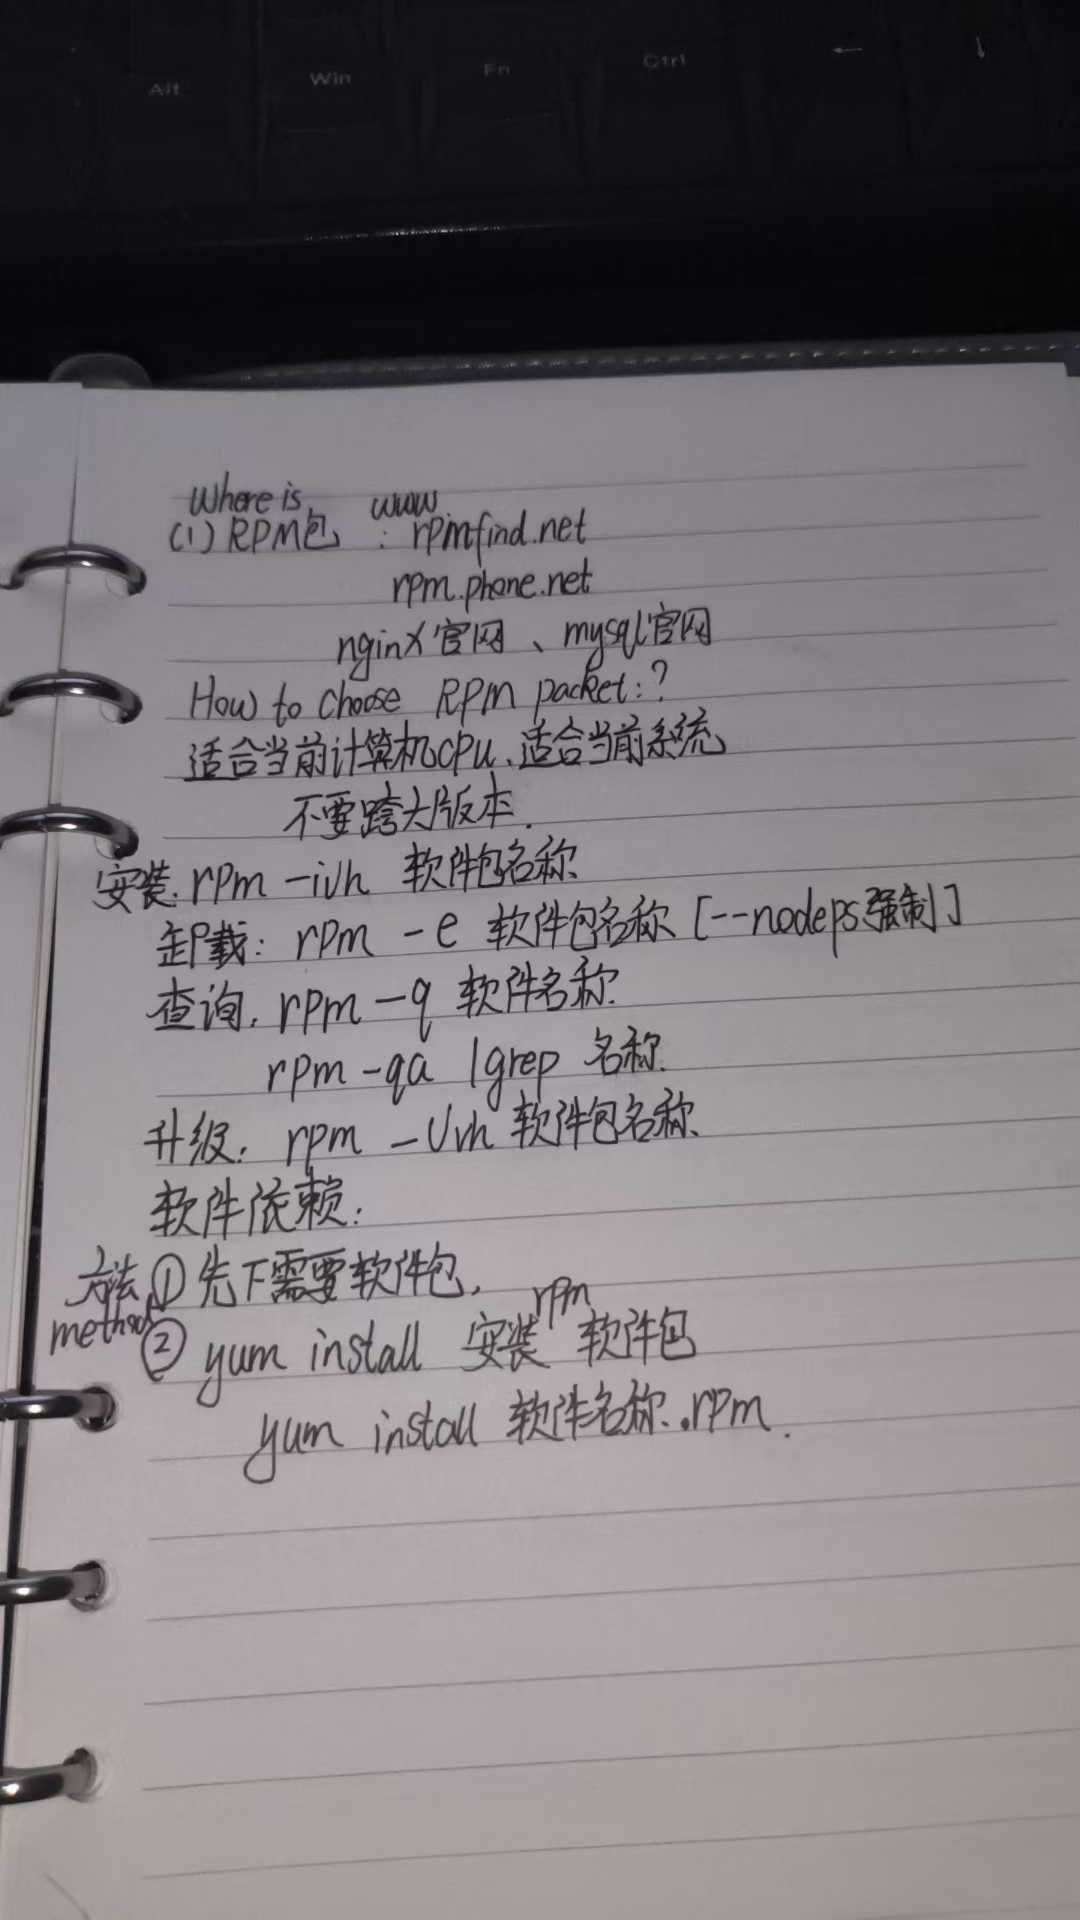 Alt Win Fn Ctrl ← ↓
Where is www
(1) RPM包 : rpmfind.net
rpm.phone.net
nginx官网、mysql官网
How to choose RPM packet:?
适合当前计算机cpu、适合当前系统
不要跨大版本.
安装. rpm -ivh 软件包名称
卸载: rpm -e 软件包名称 [--nodeps强制]
查询. rpm -q 软件名称
rpm -qa |grep 名称.
升级: rpm -Uvh 软件包名称.
软件依赖:
方法 ① 先下需要软件包.
method ② yum install 安装rpm软件包
yum install 软件名称.rpm.